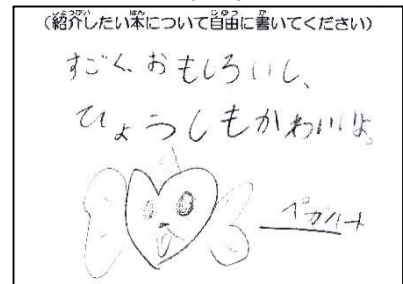 (紹介したい本について自由に書いてください)
すごく、おもしろいし、
ひょうしもかわいいよ。
ペガハート